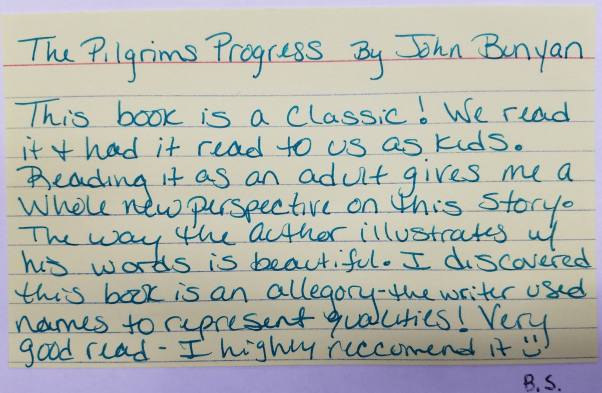 The Pilgrims Progress By John Bunyan
This book is a classic! We read
it & had it read to us as kids.
Reading it as an adult gives me a
whole new perspective on this story.
The way the author illustrates w/
his words is beautiful. I discovered
this book is an allegory-the writer used
names to represent qualities! Very
good read - I highly reccomend it :)
B.S.